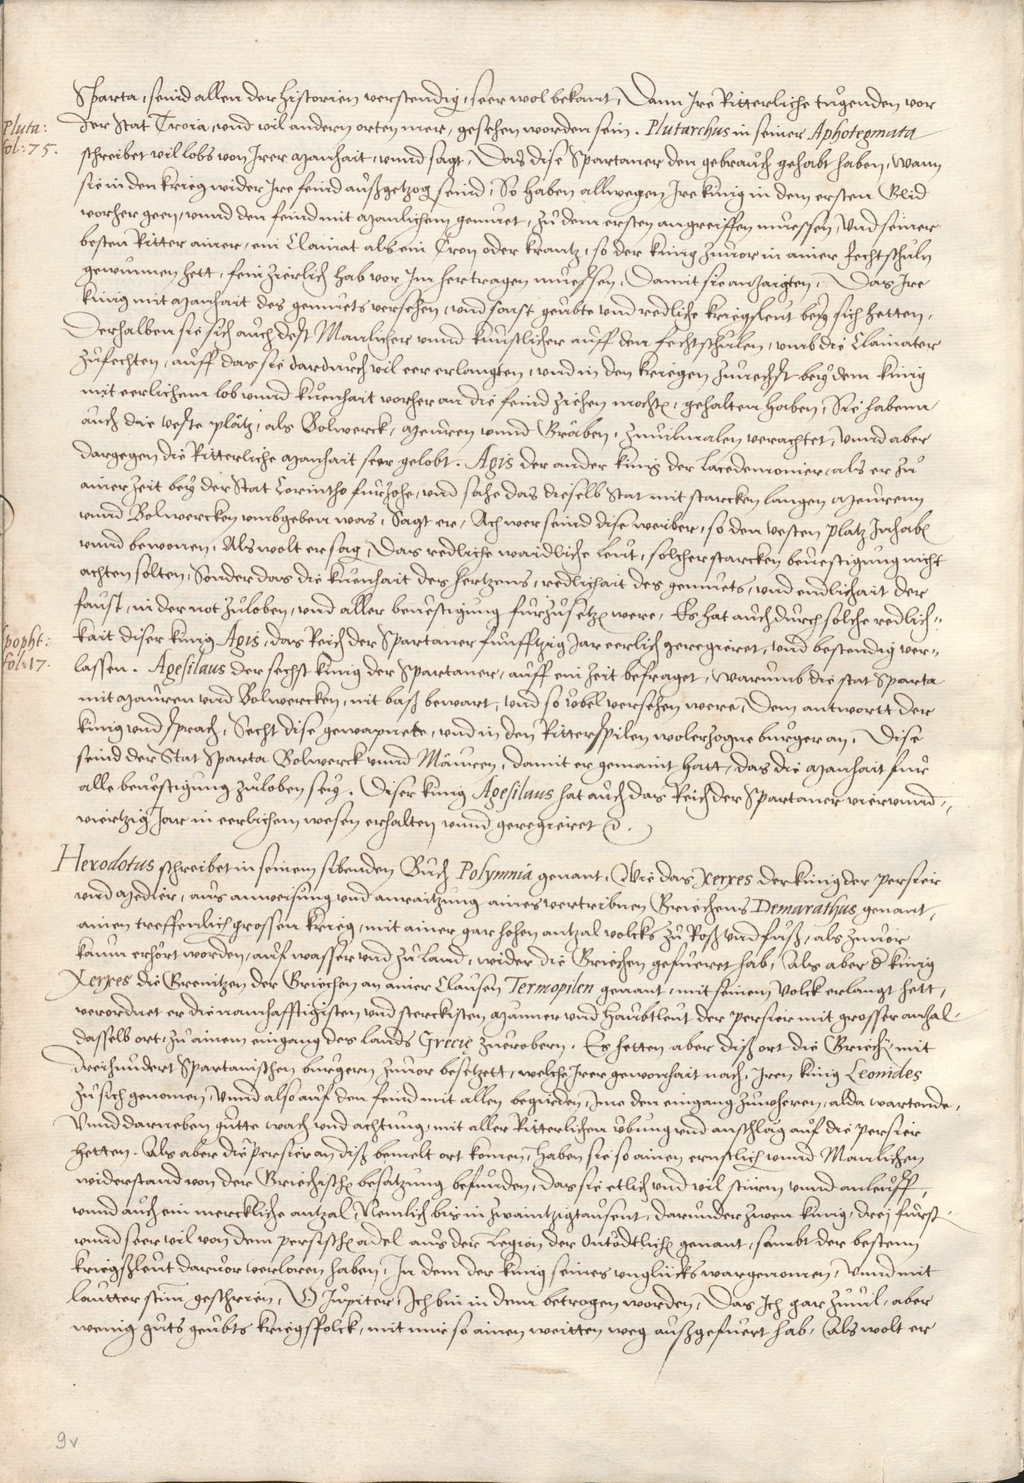 Sparta, seind allen der Historien verstendig, seer wol bekant, Dann Ire Ritterliche tugenden vor
Pluta:
fol: 75.
der Stat Troia, und vil andern orten mer, gesehen worden sein. Plutarchus in seiner Aphotegmata
schreibet vil lobs von Irer Manhait, unnd sagt, Das dise Spartaner den gebrauch gehabt haben, Wann
sie in den krieg wider Ire feind außgetzog seind, So haben allwegen Ire künig in dem ersten Glid
vorher geen, unnd den feind mit Manlichem gemuet, zu dem ersten angreiffen muessen, Und seiner
besten Ritter ainer, ein Clainat als ein Cron oder krantz, so der künig zuvor in ainer fechtschuln
gewunnen hett, fein zierlich hab vor Im hertragen muessen, Damit sie anzaigten, Das Ire
künig mit Manhait des gemuets versehen, und sonst geubte und redliche kriegsleut bey sich hetten,
Derhalben sie sich auch dest Manlicher unnd kunstlicher auff den fechtschulen, umb die Clainater
zufechten, auff das sie dardurch vil eer erlangten, und in den kriegen zunechst bey dem künig
mit eerlichem lob unnd kuenhait vorher an die feind ziehen mochten, gehalten haben, Sie habenn
auch die veste plätz, als Bolwerck, Meuren unnd Gräben, zuvilmalen verachtet, unnd aber
dargegen die Ritterliche Manhait seer gelobt. Agis der ander künig der Lacedemonier, als er zu
ainer Zeit bey der Stat Corintho furzohe, und sahe das dieselb Stat mit starcken langen Meurenn
unnd Bolwercken umbgeben was, Sagt er, Ach wer seind dise weiber, so den vesten platz Inhaben
unnd bewonen, Als wolt er sagen, Das redliche waidliche leut, solcher starcken bevestigung nicht
achten solten, Sonder das die kuenhait des hertzens, redlichait des gemuets, und endlichait der
faust, in der not zuloben, und aller bevestigung furzusetzen were, Es hat auch durch solche redlich-
Apopht:
fol: 17.
kait diser künig Agis, das Reich der Spartaner funfftzig Jar eerlich geregieret, und bestendig ver-
lassen. Agesilaus der sechst künig der Spartaner, auff ein Zeit befraget, warumb die stat Sparta
mit Mauren und Bolwercken, nit baß bewart, und so übel versehen were, Dem antwortt der
künig und sprach, Secht dise gewapnete, und in den Ritterspilen wolerzogne burger an, Dise
seind der Stat Sparta Bolwerck unnd Mauren, damit er gemaint hatt, das die Manhait fur
alle bevestigung zuloben sey. Diser künig Agesilaus hat auch das Reich der Spartaner vierunnd-
viertzig Jar in eerlichem wesen erhalten unnd geregieret
Herodotus schreibet in seinem sibenden Buch Polymnia genant, Wie das Xerxes der künig der Persier
und Medier, aus anweisung und anraitzung aines vertribnen Griechens Demarathus genant,
ainen treffenlich grossen krieg, mit ainer gar hohen antzal volcks zu Roß und fuß, als zuvor
kaum erhört worden, auf wasser und zu Land, wider die Griechen gefueret hab, Als aber d künig
Xerxes die Grenitzen der Griechen an ainer Clausen Termopilen genant, mit seinem Volck erlangt hett,
verordnet er die namhafftigisten und sterckisten Männer und Haubtleut der Persier mit grosser anzal
dasselb ort, zu ainem eingang des Lands Grecie zuerobern. Es hetten aber diß ort die Griechen mit
dreihundert Spartanischen burgern zuvor besetzt, welche Irer gewonhait nach, Iren künig Leonides
zu sich genomen, Unnd also auf den feind mit allen begirden, Ime den eingang zuweheren, alda wartende,
Unnd darneben gutte wach und achtung, mit aller Ritterlichen übung und anschläg auf die Persier
hetten. Als aber die Persier an diß bemelt ort komen, Haben sie so ainen ernstlich unnd Manlichen
widerstand von der Griechischen besatzung befunden, das sie etlich und vil stürm unnd anleuff,
unnd auch ein merckliche antzal, Nemlich bis in zwaintzigtausent, darunder zwen künig, drej fürsten
unnd seer vil von dem Persischen adel aus der Legion der Ontödtlichen genant, sambt der bestenn
kriegsleut darvor verloren haben, In dem der künig seines unglücks wargenomen, Unnd mit
lautter stim geschrien, O Jupiter, Ich bin in dem betrogen worden, Das Ich gar zuvil, aber
wenig guts geubts kriegsfolck, mit mir so ainen weitten weg außgefuert hab, Als wolt er
9v